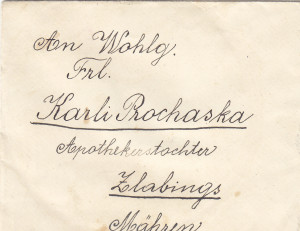 An Wohlg.
Frl.
Karli Prochaska
Apothekerstochter
Zlabings
Mähren